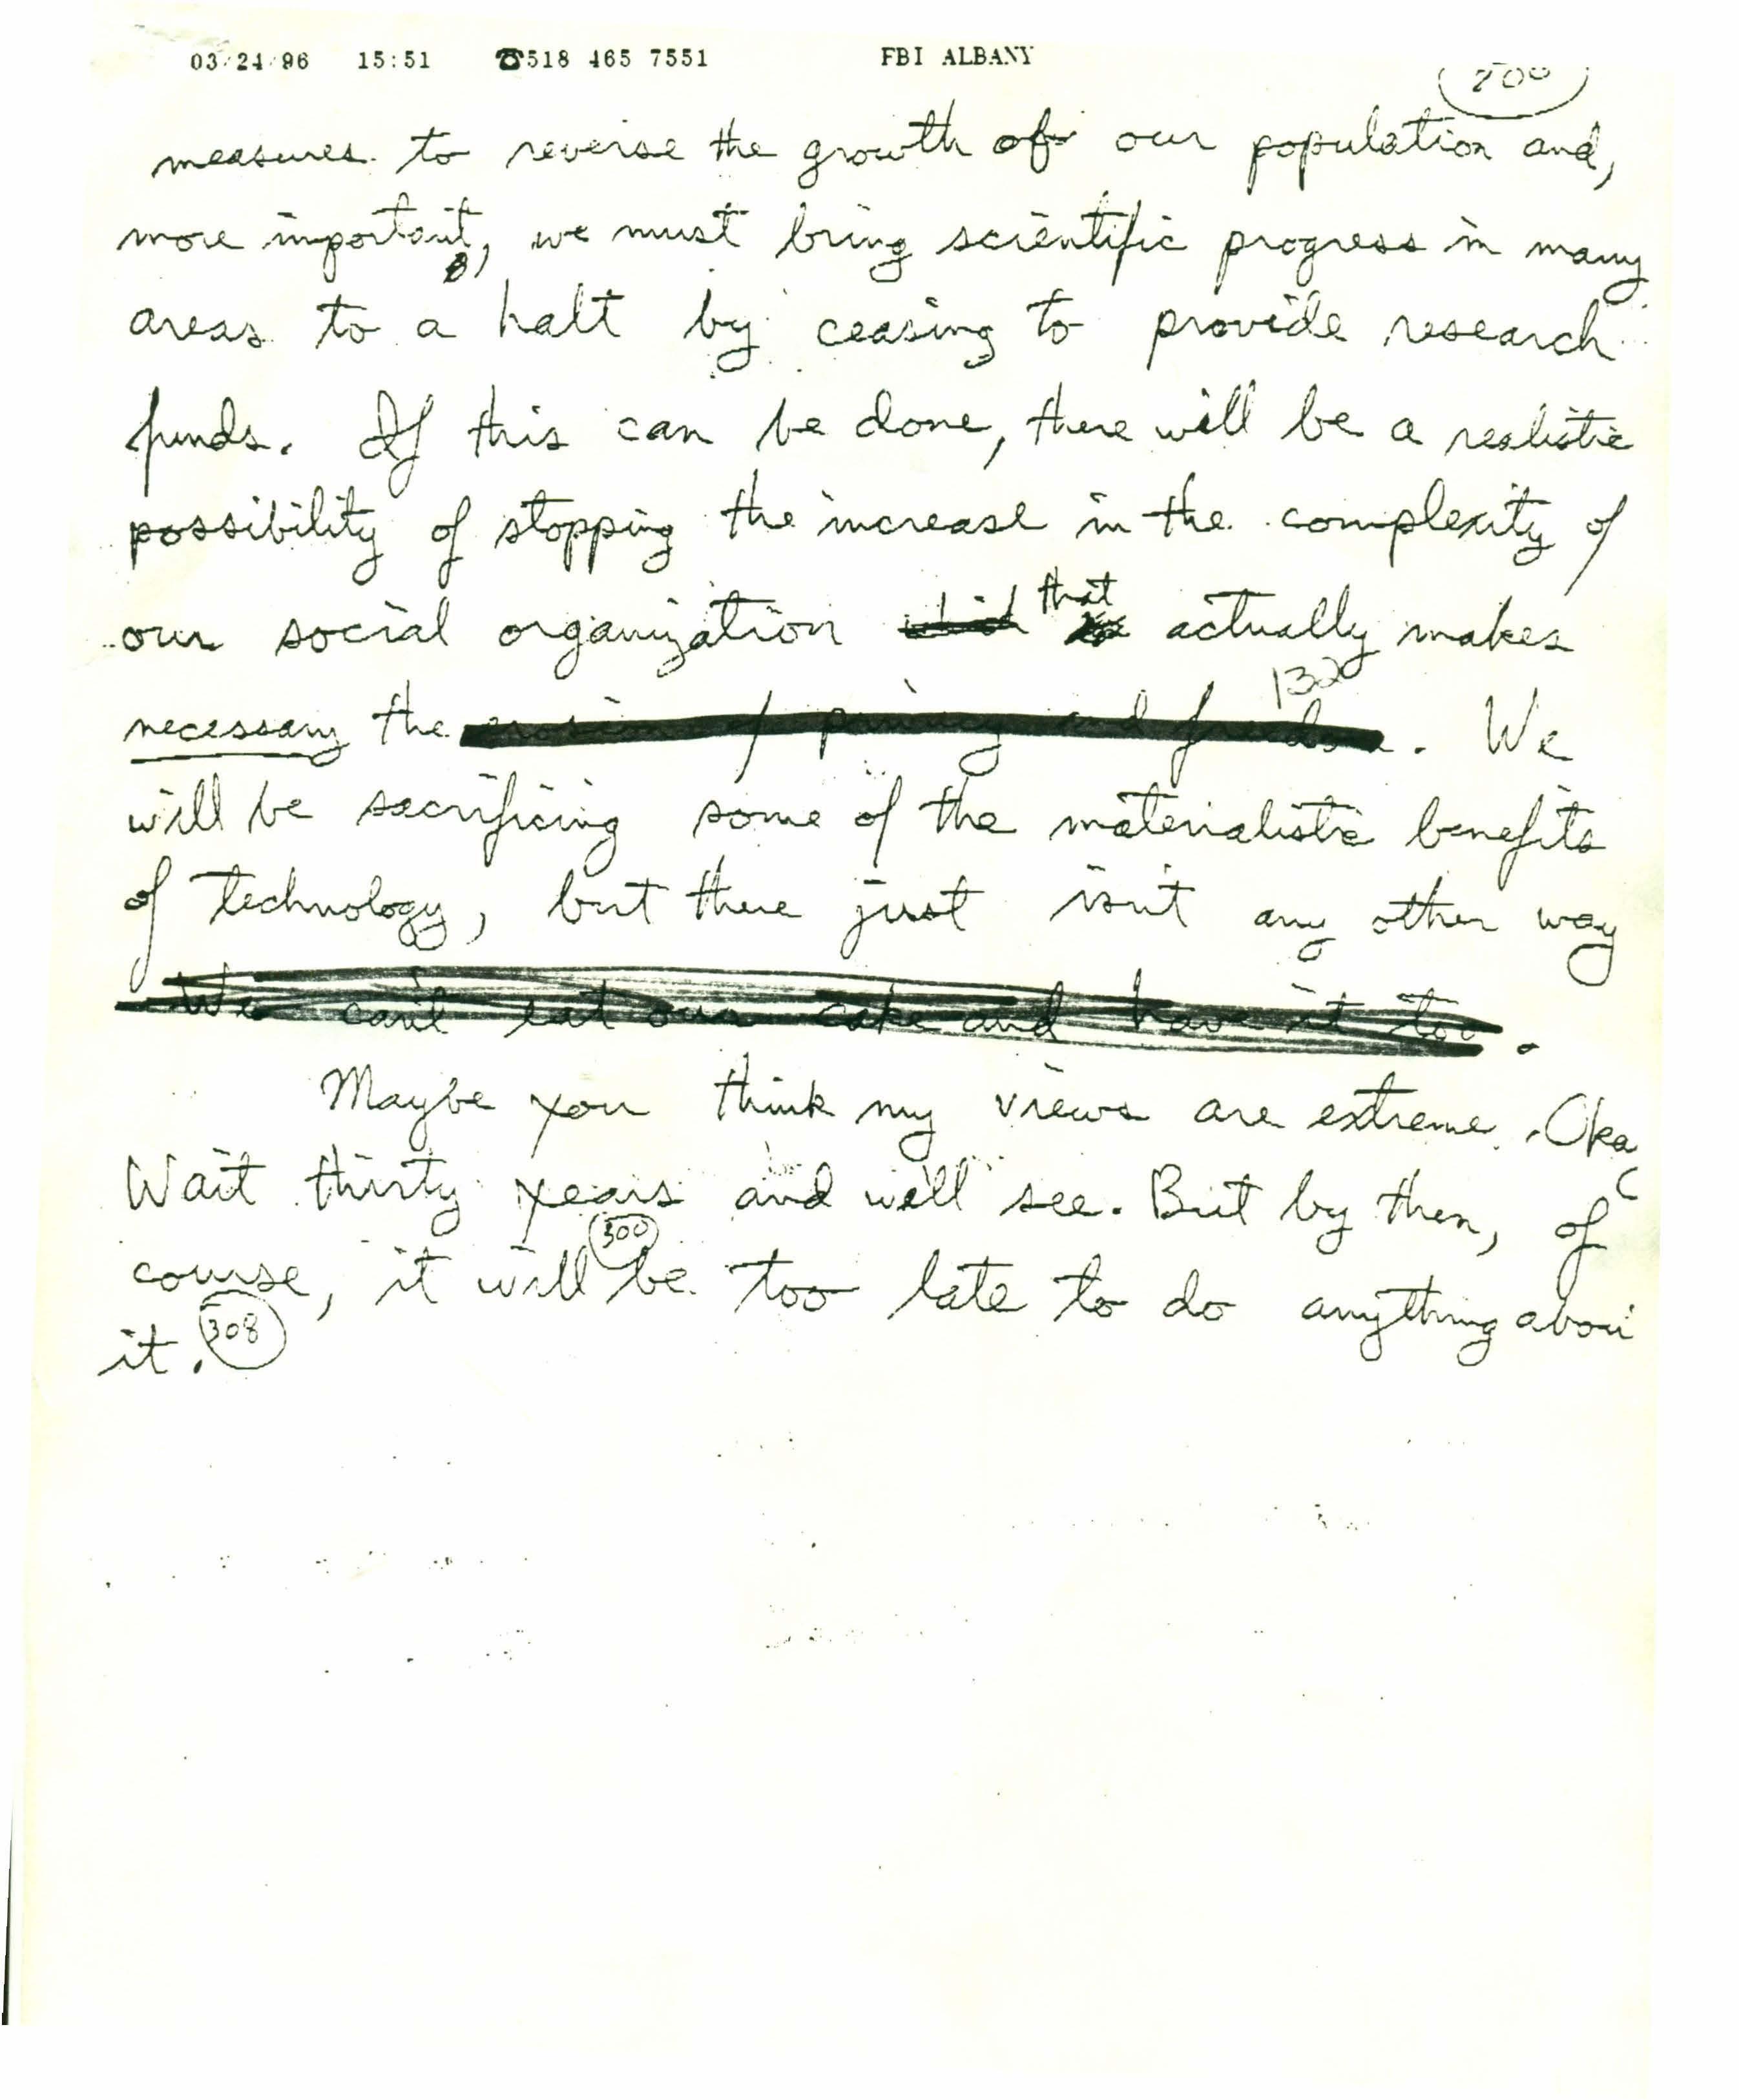 03/24/96 15:51 ☎518 465 7551 FBI ALBANY
200
measures to reverse the growth of our population and,
more important, we must bring scientific progress in many
areas to a halt by ceasing to provide research
funds. If this can be done, there will be a realistic
possibility of stopping the increase in the complexity of
our social organization that actually makes
132
necessary the erosion of privacy and freedom. We
will be sacrificing some of the materialistic benefits
of technology, but there just isn't any other way
We can't eat our cake and have it too.
Maybe you think my views are extreme. Oka
Wait thirty years and we'll see. But by then, of
300
course, it will be too late to do anything about
it. 308